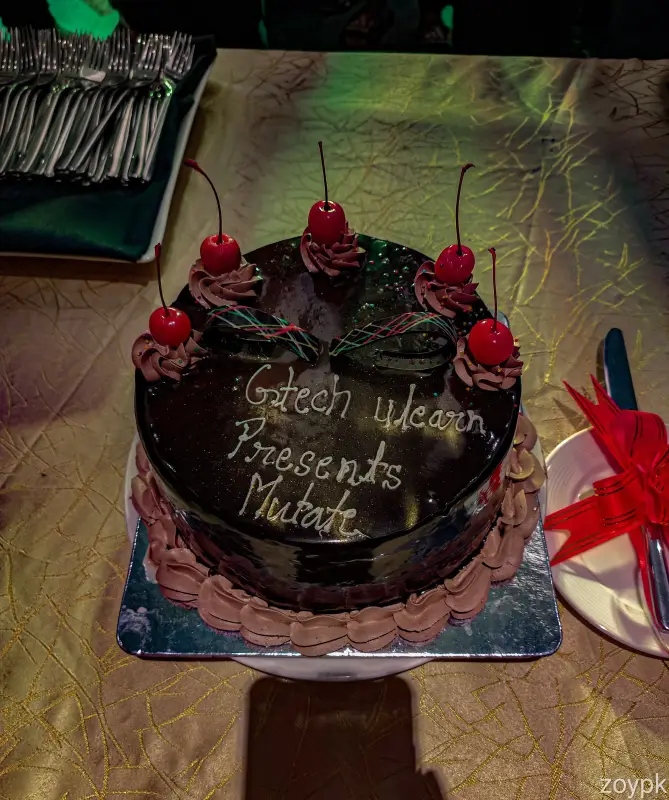 Gtech ulearn
Presents
Mutate
zoypk